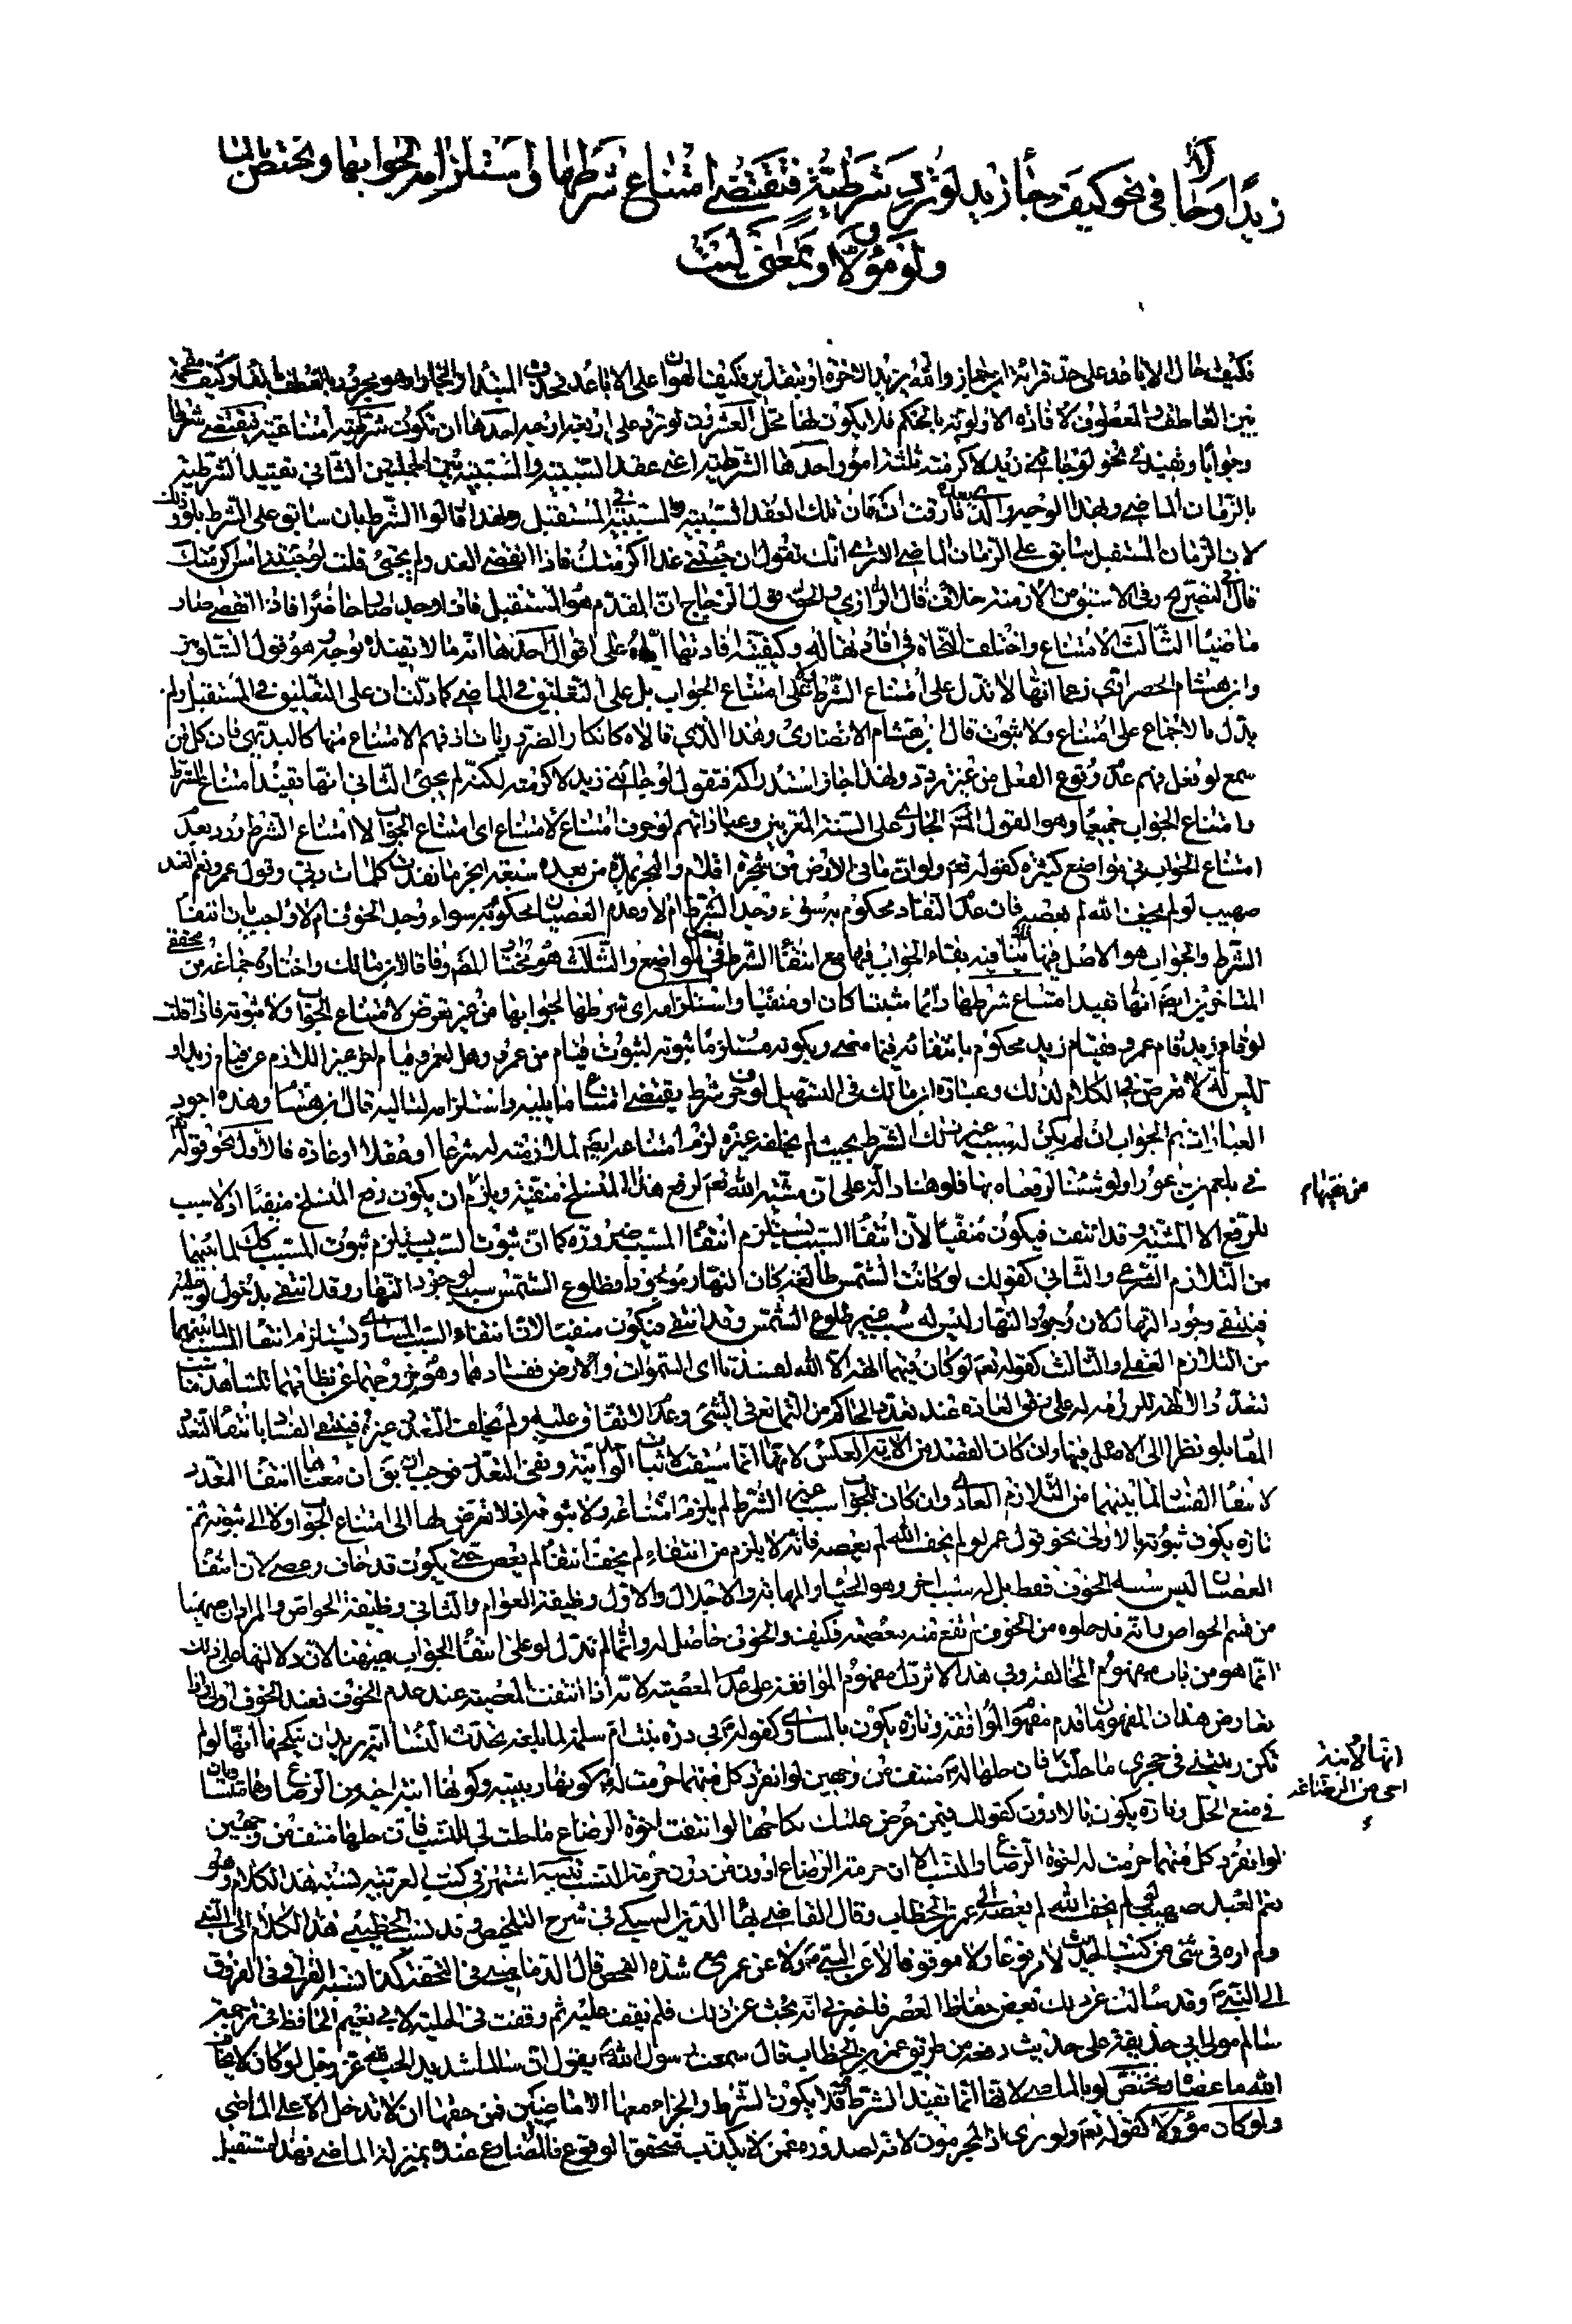 زيدًا وجا لا في نحو كيف وجأ زيد لو ترد شرطية فتقتضي امتناع شرطها واستلزامه لجوابها وتختص بالما
ولو مؤولا وبمعنى ليت
فكيف حال الاباعد على حد قراءة ابن جماز والله يريد الاخرة او بتقدير فكيف الهوان على الاباعد فحذف المبتدا والجار او هو مجرور بالعطف بالفاء وكيف مقحمة
بين العاطف والمعطوف لافادة الاولوية بالحكم فلا يكون لها محل العشرون لو ترد على اربعة اوجه احدها ان تكون شرطية امتناعية فتقتضي شرطا
وجوابا وتفيد في نحو لو جاءني زيد لاكرمته ثلثة امور احدها الشرطية اعني عقد السببية والمسببية بين الجملتين الثاني تقييد الشرطية
بالزمان الماضي وبهذا الوجه وما بعده فارقت ان فان تلك لعقد السببية والمسببية في المستقبل ولهذا قالوا الشرط بان سابق على الشرط بلو وذلك
لان الزمان المستقبل سابق على الزمان الماضي الا ترى انك تقول ان جئتني غدا اكرمتك فاذا انقضى الغد ولم يجئ قلت لو جئتني امس اكرمتك
قال في التصريح وفي الاسبق من الازمنة خلاف قال الرازي والحق قول الزجاج ان المقدم هو المستقبل فاذا وجد صار حاضرا فاذا انقضى صار
ماضيا الثالث الامتناع واختلف النحاة في افادتها له وكيفية افادتها اياه على اقوال احدها انها لا تفيده بوجه وهو قول الشلوبين
وابن هشام الخضراوي زعما انها لا تدل على امتناع الشرط ولا على امتناع الجواب بل على التعليق في الماضي كما دلت ان على التعليق في المستقبل ولم
تدل بالاجماع على امتناع ولا ثبوت قال ابن هشام الانصاري وهذا الذي قالاه كانكار الضروريات اذ فهم الامتناع منها كالبديهي فان كل من
سمع لو فعل فهم عدم وقوع الفعل من غير تردد ولهذا جاز استدراكه فتقول لو جاءني زيد لاكرمته لكنه لم يجئ الثاني انها تفيد امتناع الشرط
وامتناع الجواب جميعا وهو القول الجاري على السنة المعربين وعباراتهم لو حرف امتناع لامتناع اي امتناع الجواب لامتناع الشرط ورد بعدم
امتناع الجواب في مواضع كثيرة كقوله تعم ولو ان ما في الارض من شجرة اقلام والبحر يمده من بعده سبعة ابحر ما نفدت كلمات ربي وقول عمر نعم العبد
صهيب لو لم يخف الله لم يعصه فان عدم النفاد محكوم به سواء وجد الشرط ام لا وعدم العصيان محكوم به سواء وجد الخوف ام لا واجيب بان انتفا
الشرط والجواب هو الاصل فيها فلا ينافيه بقاء الجواب فيها مع انتفأ الشرط في بعض المواضع والثالث هو مختار المصنف وفاقا لابن مالك واختاره جماعة من محققي
المتاخرين ايضا انها تفيد امتناع شرطها دائما مثبتا كان او منفيا واستلزامه اي شرطها لجوابها من غير تعرض لامتناع الجواب ولا ثبوته فاذا قلت
لو قام زيد قام عمرو فقيام زيد محكوم بانتفائه فيما مضى وبكونه مستلزما ثبوته لثبوت قيام من عمرو وهل لعمرو قيام اخر غير اللازم عن قيام زيد او
ليس له لا تعرض في الكلام لذلك وعبارة ابن مالك في التسهيل لو حرف شرط يقتضي امتناع ما يليه واستلزامه لتاليه قال ابن هشام وهذه اجود
العبارات ثم الجواب ان لم يكن له سبب غير ذلك الشرط بحيث لم يخلفه غيره لزم امتناعه ايضا لملازمته له شرعا او عقلا او عادة فالاول نحو قوله تعم
في بلعم بن باعورا ولو شئنا لرفعناه بها فلو هنا دالة على ان مشية الله تعم لرفع هذا المنسلخ منتفية ويلزم ان يكون رفع المنسلخ منفيا اذ لا سبب
للرفع الا المشية وقد انتفت فيكون منفيا لان انتفأ السبب يستلزم انتفأ المسبب ضرورة كما ان ثبوت السبب يستلزم ثبوت المسبب كذلك لما بينهما
من التلازم الشرعي والثاني كقولك لو كانت الشمس طالعة كان النهار موجودا فطلوع الشمس سبب لوجود النهار وقد انتفى بدخول لو عليه
فينتفي وجود النهار لان وجود النهار ليس له سبب غير طلوع الشمس وقد انتفى فيكون منفيا لان انتفاء السبب المساوي يستلزم انتفأ المسبب لما بينهما
من التلازم العقلي والثالث كقوله تعم لو كان فيهما الهة الا الله لفسدتا اي السموات والارض ففسادهما وهو خروجهما عن نظامهما المشاهد مناسب
لتعدد الالهة للزومه له على وفق العادة عند تعدد الحاكم من التمانع في الشئ وعدم الاتفاق عليه ولم يخلف التعدد غيره فينتفي الفساد بانتفأ التعدد
المفاد بلو نظرا الى الاصل فيها وان كان القصد من الاية العكس لانها انما سيقت لاثبات الوحدانية ونفي التعدد
لانتفأ الفساد لما بينهما من التلازم العادي وان كان للجواب سبب غير الشرط لم يلزم امتناعه ولا ثبوته اذ لا تعرض لها الى امتناع الجواب ولا الى ثبوته ثم
تارة يكون ثبوته بالاولى نحو قول عمر لو لم يخف الله لم يعصه فانه لا يلزم من انتفاء لم يخف انتفأ لم يعص حتى يكون قد خاف وعصى لان انتفأ
العصيان ليس سببه الخوف فقط بل له سبب اخر وهو الحيأ والمهابة والاجلال والاول وظيفة العوام والثاني وظيفة الخواص والمراد ان صهيبا
من قسم الخواص وانه قدر خلوه من الخوف لم تقع منه معصية فكيف والخوف حاصل له وانما لم تدل لو على انتفأ الجواب هنا لان دلالتها على ذلك
انما هو من باب مفهوم المخالفة وفي هذا الاثر دل مفهوم الموافقة على عدم المعصية لانه اذا انتفت المعصية عند عدم الخوف فعند الخوف اولى واذا
تعارض هذان المفهومان قدم مفهوم الموافقة وتارة يكون بالمساوي كقوله في درة بنت ام سلمة لما بلغه تحدث النسأ انه يريد ان ينكحها انها لو لم
تكن ربيبتي في حجري ما حلت لي فان حلها له منتف من وجهين لو انفرد كل منهما حرمت له كونها ربيبته وكونها ابنة اخيه من الرضاع وهما متساويان
في منع الحل وتارة يكون بالادون كقولك فيمن عرض عليك نكاحها لو انتفت اخوة الرضاع ما حلت لي للنسب فان حلها منتف من وجهين
لو انفرد كل منهما حرمت له اخوة الرضاع والنسب الا ان حرمة الرضاع ادون من حرمة النسب تنبيه اشتهر في كتب العربية نسبة هذا الكلام وهو
نعم العبد صهيب لو لم يخف الله لم يعصه الى عمر بن الخطاب وقال القاضي بهأ الدين السبكي في شرح التلخيص وقد نسب الخطيبي هذا الكلام الى النبي
ولم اره في شئ من كتب الحديث لا مرفوعا ولا موقوفا لا عن النبي ولا عن عمر مع شدة الفحص قال الدماميني في التحفة وكذا نسبه القرافي في الفروق
الى النبي وقد سالت عن ذلك بعض حفاظ العصر فاخبرني انه بحث عن ذلك فلم يقف عليه ثم وقفت في الحلية لابي نعيم الحافظ في ترجمة
سالم مولى ابي حذيفة على حديث رفعه من طريق عمر بن الخطاب قال سمعت رسول الله يقول ان سالما شديد الحب لله عز وجل لو كان لا يخاف
الله ما عصاه وتختص لو بالماضي لانها انما تفيد الشرط فيه فلا يكون الشرط والجزاء معها الا ماضيين فمن حقها ان لا تدخل الا على الماضي
ولو كان مؤولا كقوله تعم ولو ترى اذ المجرمون لانه لصدوره عمن لا يكذب متحقق الوقوع فالمضارع عنده بمنزلة الماضي فهذا مستقبل
انها لابنة
اخي من الرضاعة